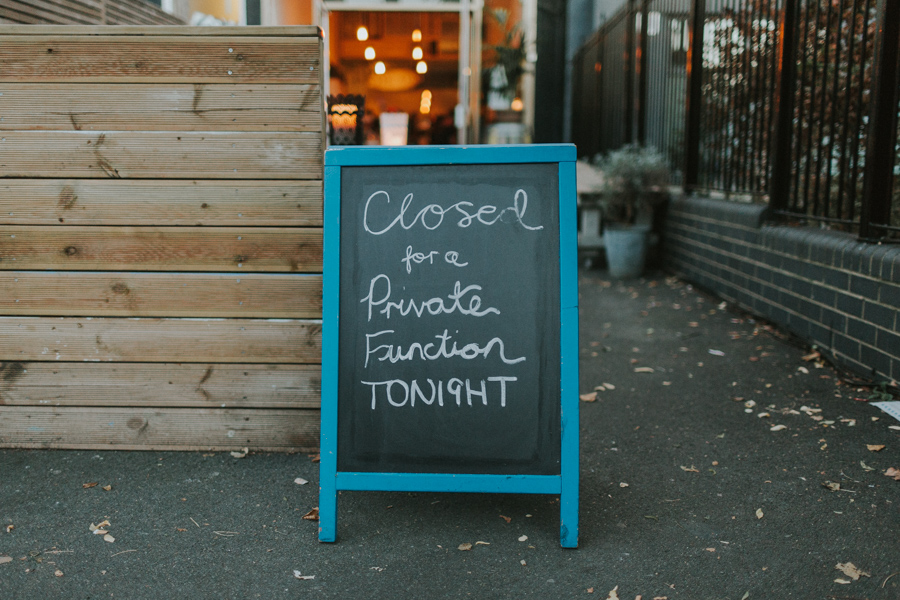 Closed
for a
Private
Function
TONIGHT